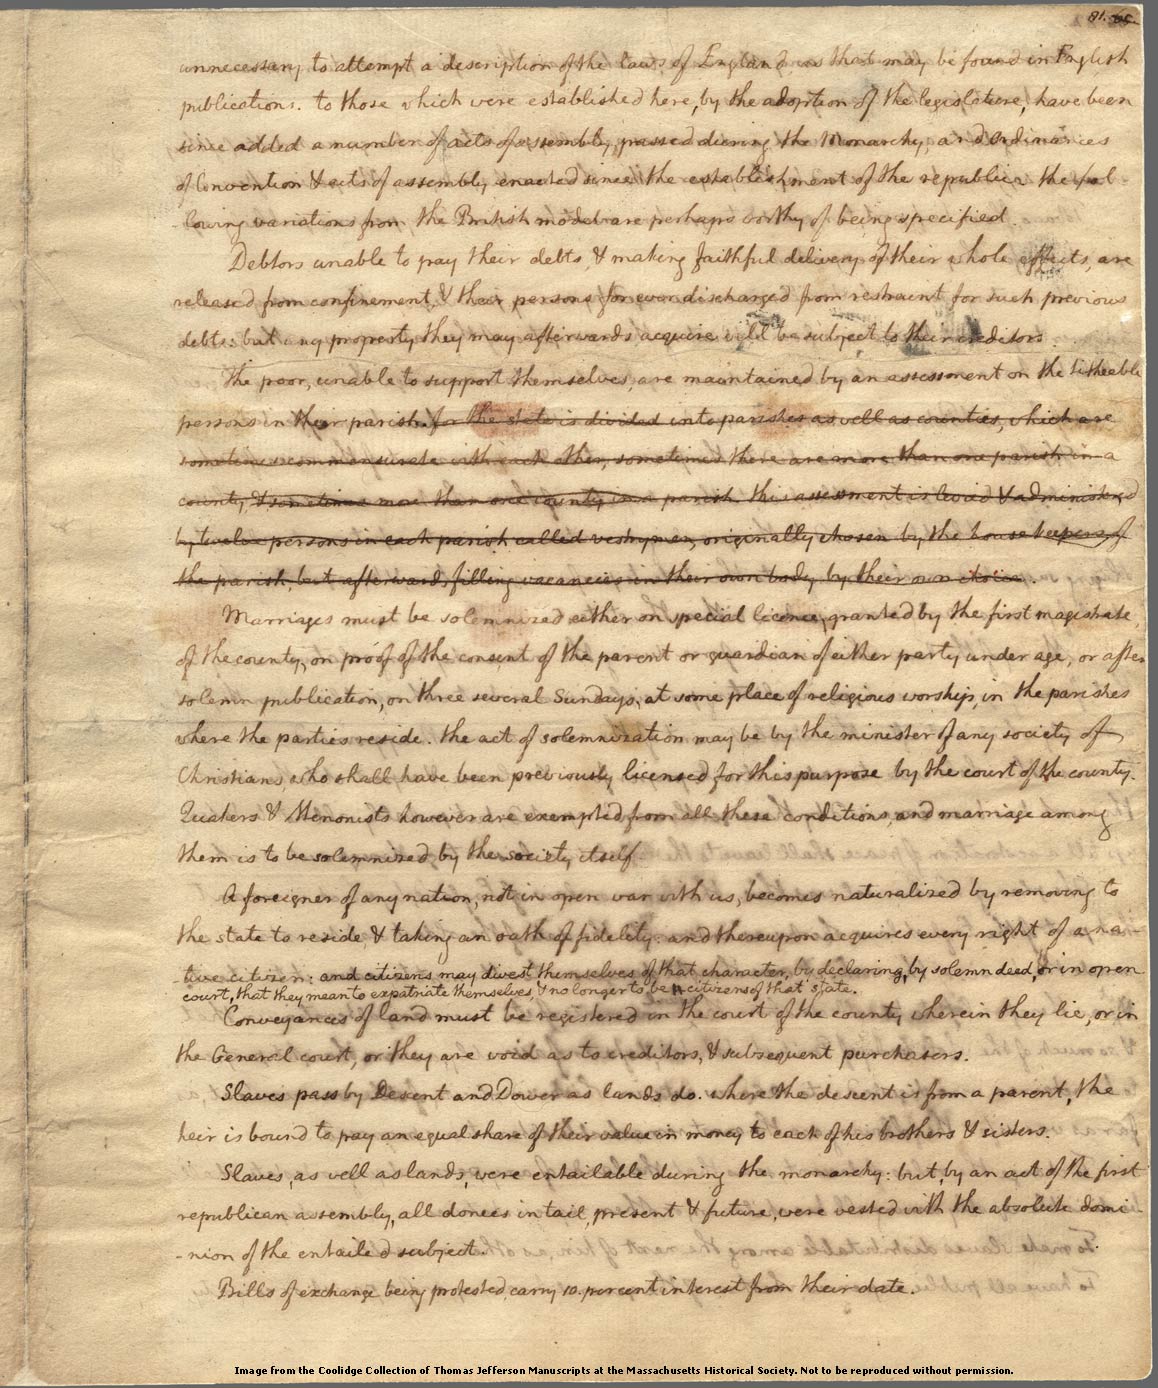 81. 60.
unnecessary to attempt a description of the laws of England, as that may be found in English
publications. to those which were established here, by the adoption of the legislature, have been
since added a number of acts of assembly, passed during the Monarchy, and Ordinances
of Convention & acts of assembly enacted since the establishment of the republic. the fol-
-lowing variations from the British model are perhaps worthy of being specified.
Debtors unable to pay their debts, & making faithful delivery of their whole effects, are
released from confinement, & their persons for ever discharged from restraint for such previous
debts: but any property they may afterwards acquire will be subject to their creditors.
The poor, unable to support themselves, are maintained by an assessment on the titheable
persons in their parish. for the state is divided into parishes as well as counties, which are
sometimes commensurate with each other, sometimes there are more than one parish in a
county, & sometimes more than one county in a parish. this assessment is levied & administered
by twelve persons in each parish called vestrymen, originally chosen by the housekeepers of
the parish, but afterwards filling vacancies in their own body by their own choice.
Marriages must be solemnized either on special licence, granted by the first magistrate
of the county, on proof of the consent of the parent or guardian of either party under age, or after
solemn publication, on three several Sundays, at some place of religious worship, in the parishes
where the parties reside. the act of solemnization may be by the minister of any society of
Christians, who shall have been previously licensed for this purpose by the court of the county.
Quakers & Menonists however are exempted from all these conditions, and marriage among
them is to be solemnized by the society itself.
A foreigner of any nation, not in open war with us, becomes naturalized by removing to
the state to reside & taking an oath of fidelity: and thereupon acquires every right of a na-
-tive citizen: and citizens may divest themselves of that character, by declaring, by solemn deed, or in open
court, that they mean to expatriate themselves, & no longer to be citizens of that state.
Conveyances of land must be registered in the court of the county wherein they lie, or in
the General court, or they are void as to creditors, & subsequent purchasers.
Slaves pass by Descent and Dower as lands do. where the descent is from a parent, the
heir is bound to pay an equal share of their value in money to each of his brothers & sisters.
Slaves, as well as lands, were entailable during the monarchy: but, by an act of the first
republican assembly, all donees in tail, present & future, were vested with the absolute domi-
-nion of the entailed subject.
Bills of exchange being protested, carry 10. percent interest from their date.
Image from the Coolidge Collection of Thomas Jefferson Manuscripts at the Massachusetts Historical Society. Not to be reproduced without permission.